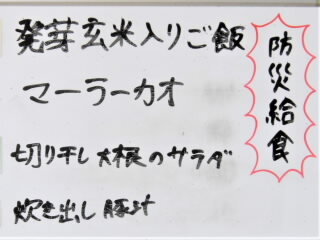 防災給食
発芽玄米入りご飯
マーラーカオ
切り干し大根のサラダ
炊き出し豚汁